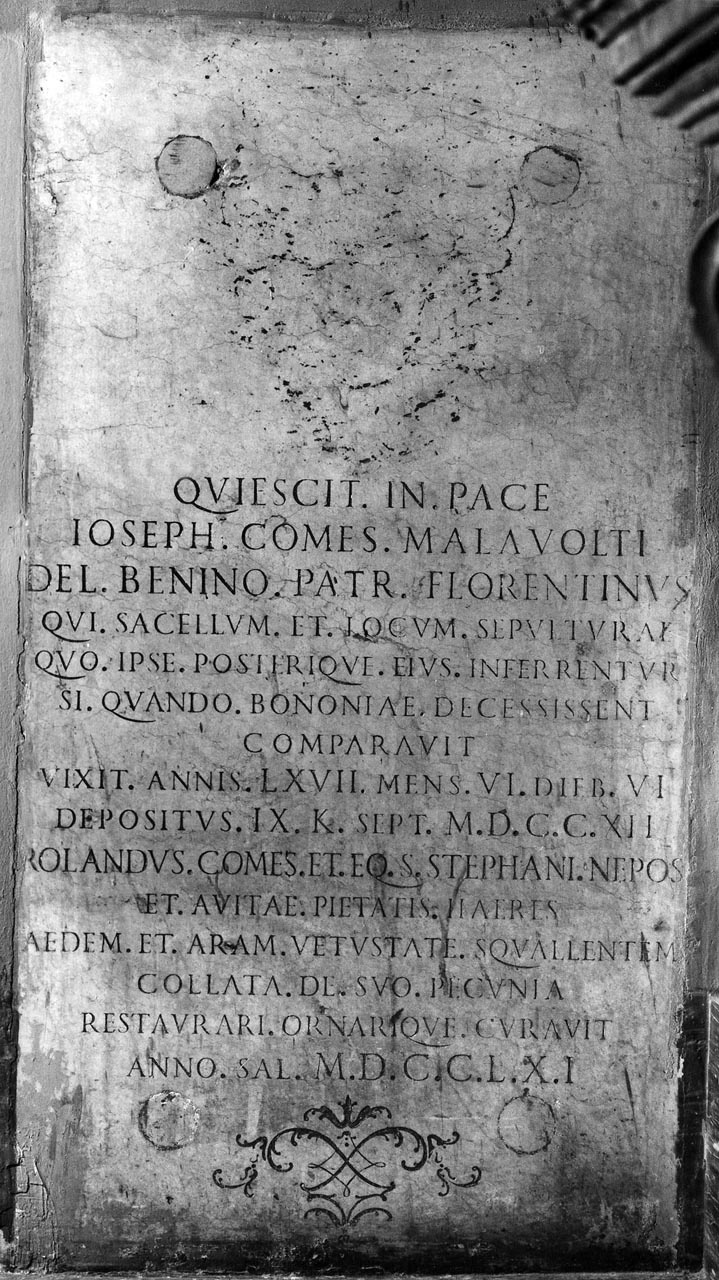 QVIESCIT. IN. PACE
IOSEPH. COMES. MALAVOLTI
DEL. BENINO. PATR. FLORENTINVS
QVI. SACELLVM. ET. LOCVM. SEPVLTVRAE
QVO. IPSE. POSTERIQVE. EIVS. INFERRENTVR
SI. QVANDO. BONONIAE. DECESSISSENT
COMPARAVIT
VIXIT. ANNIS. LXVII. MENS. VI. DIEB. VI
DEPOSITVS. IX. K. SEPT. M.D.C.C.XII
ROLANDVS. COMES. ET. EQ. S. STEPHANI. NEPOS
ET. AVITAE. PIETATIS. HAERES
AEDEM. ET. ARAM. VETVSTATE. SQVALLENTEM
COLLATA. DE. SVO. PECVNIA
RESTAVRARI. ORNARIQVE. CVRAVIT
ANNO. SAL. M.D.C.C.L.X.I